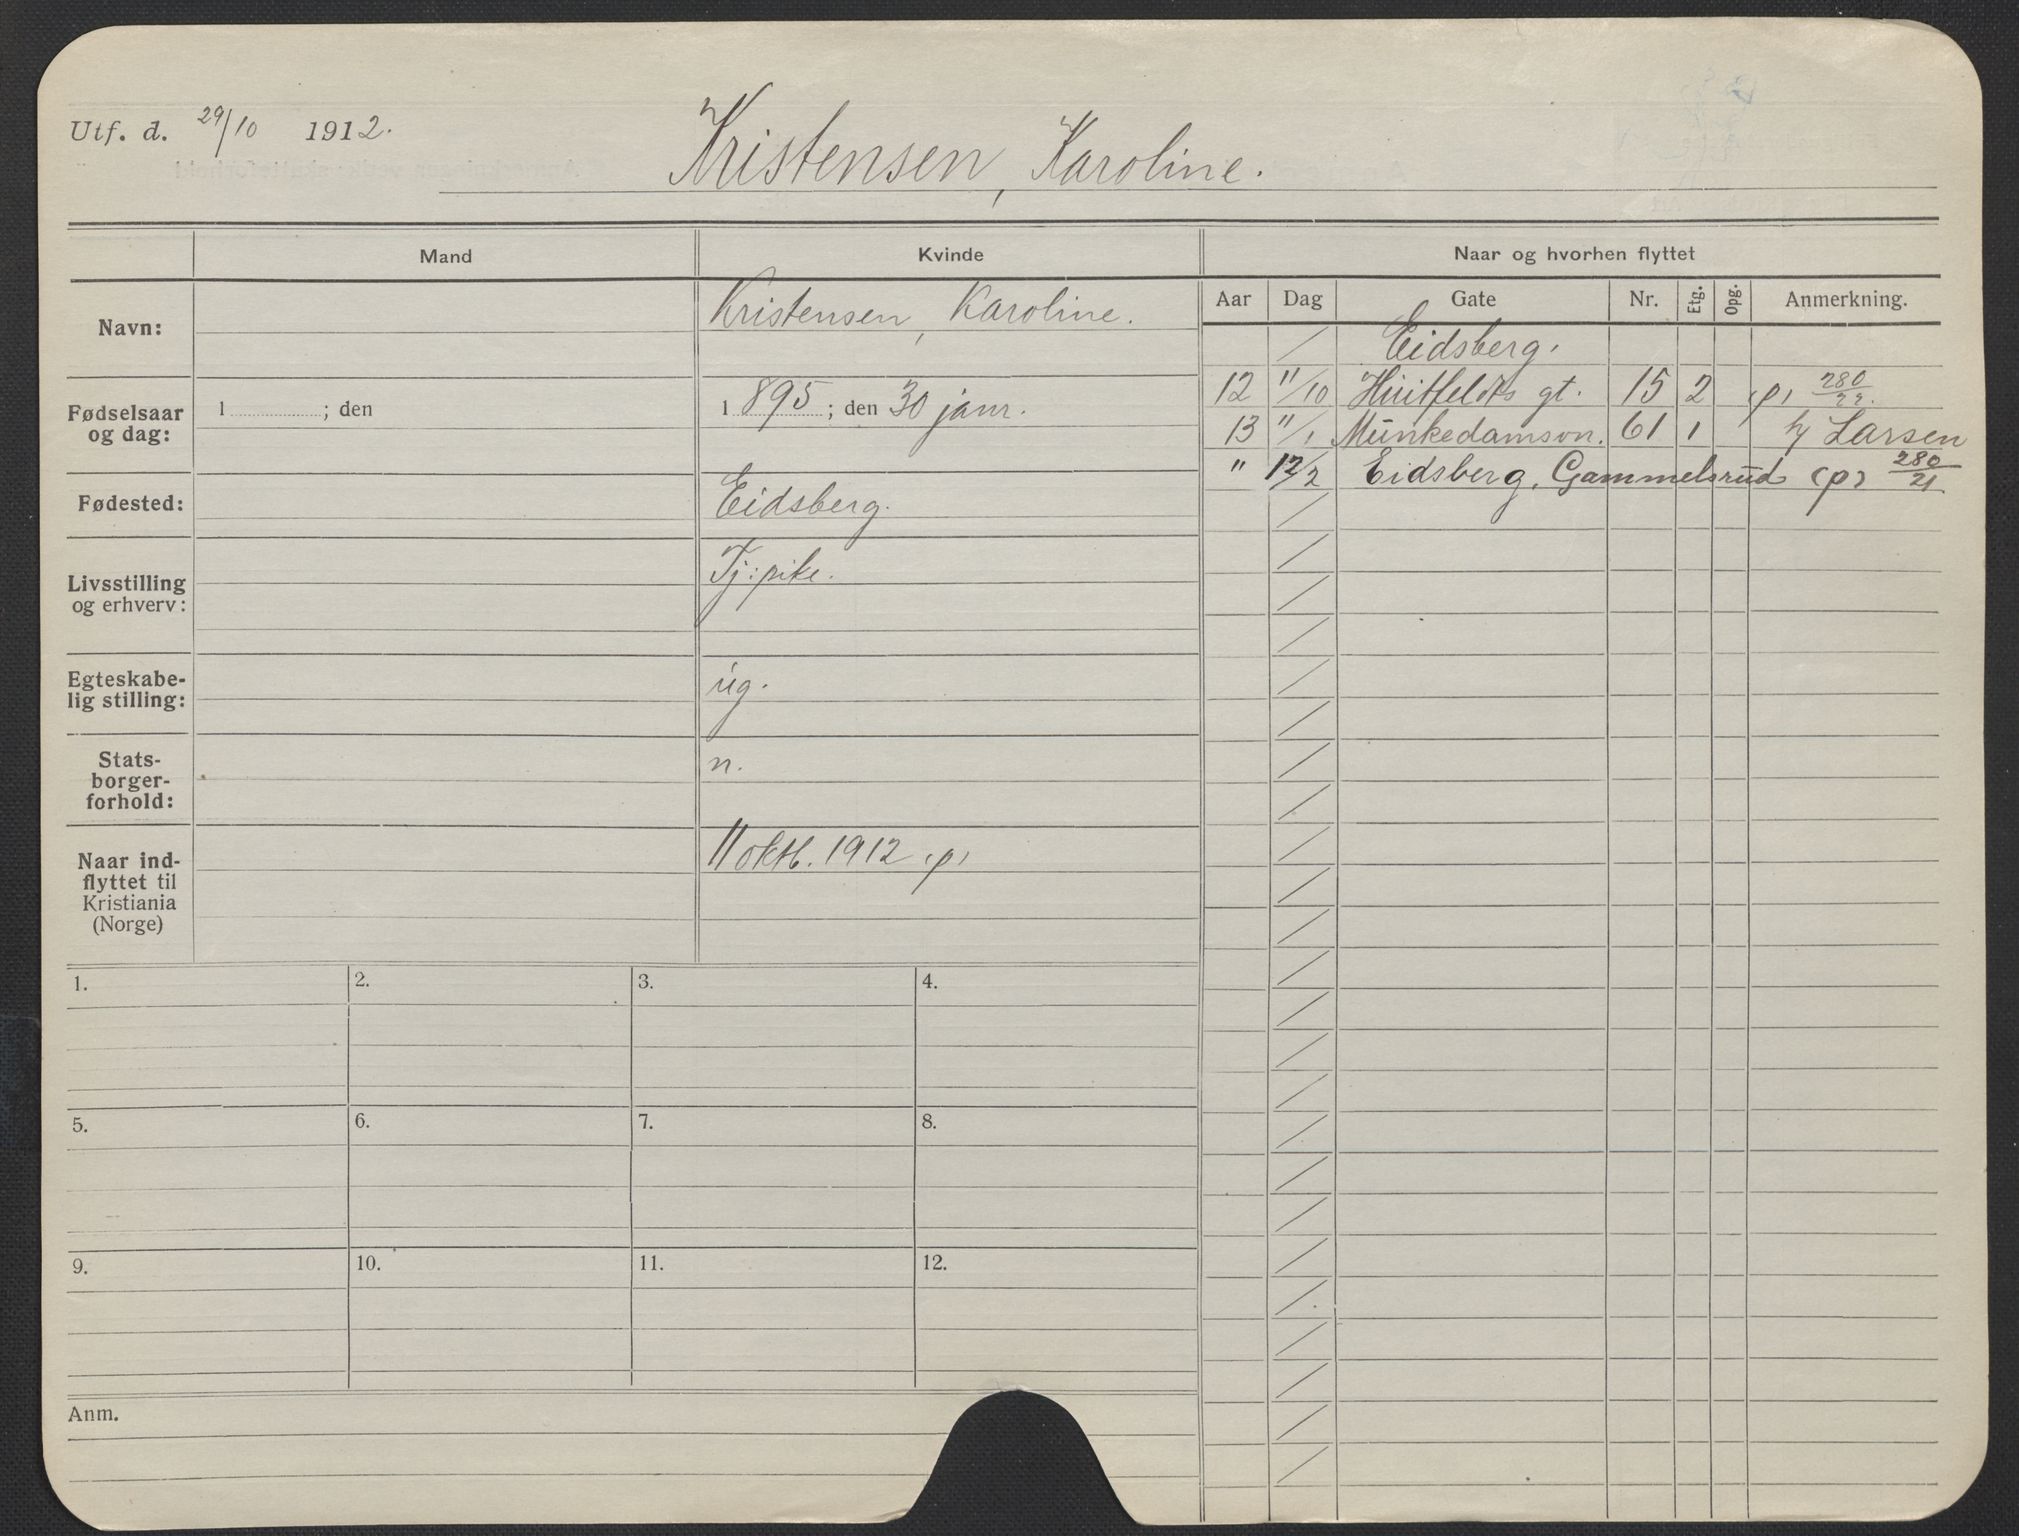 Utf. d. 29/10 1912.
Kristensen, Karoline.
Mand
Kvinde
Naar og hvorhen flyttet
Navn:
Kristensen, Karoline.
Aar Dag Gate Nr. Etg. Opg. Anmerkning.
Eidsberg.
Fødselsaar
og dag:
1 ; den
1 895 ; den 30 janr.
12 11/10 Huitfeldts gt. 15 2 (p) 280/22.
13 11/1 Munkedamsvn. 61 1 h/ Larsen
" 12/2 Eidsberg, Gammelsrud (p) 280/21
Fødested:
Eidsberg.
Livsstilling
og erhverv:
Tj:pike.
Egteskabe-
lig stilling:
ug.
Stats-
borger-
forhold:
n.
Naar ind-
flyttet til
Kristiania
(Norge)
11 oktb. 1912 (p)
1. 2. 3. 4.
5. 6. 7. 8.
9. 10. 11. 12.
Anm.